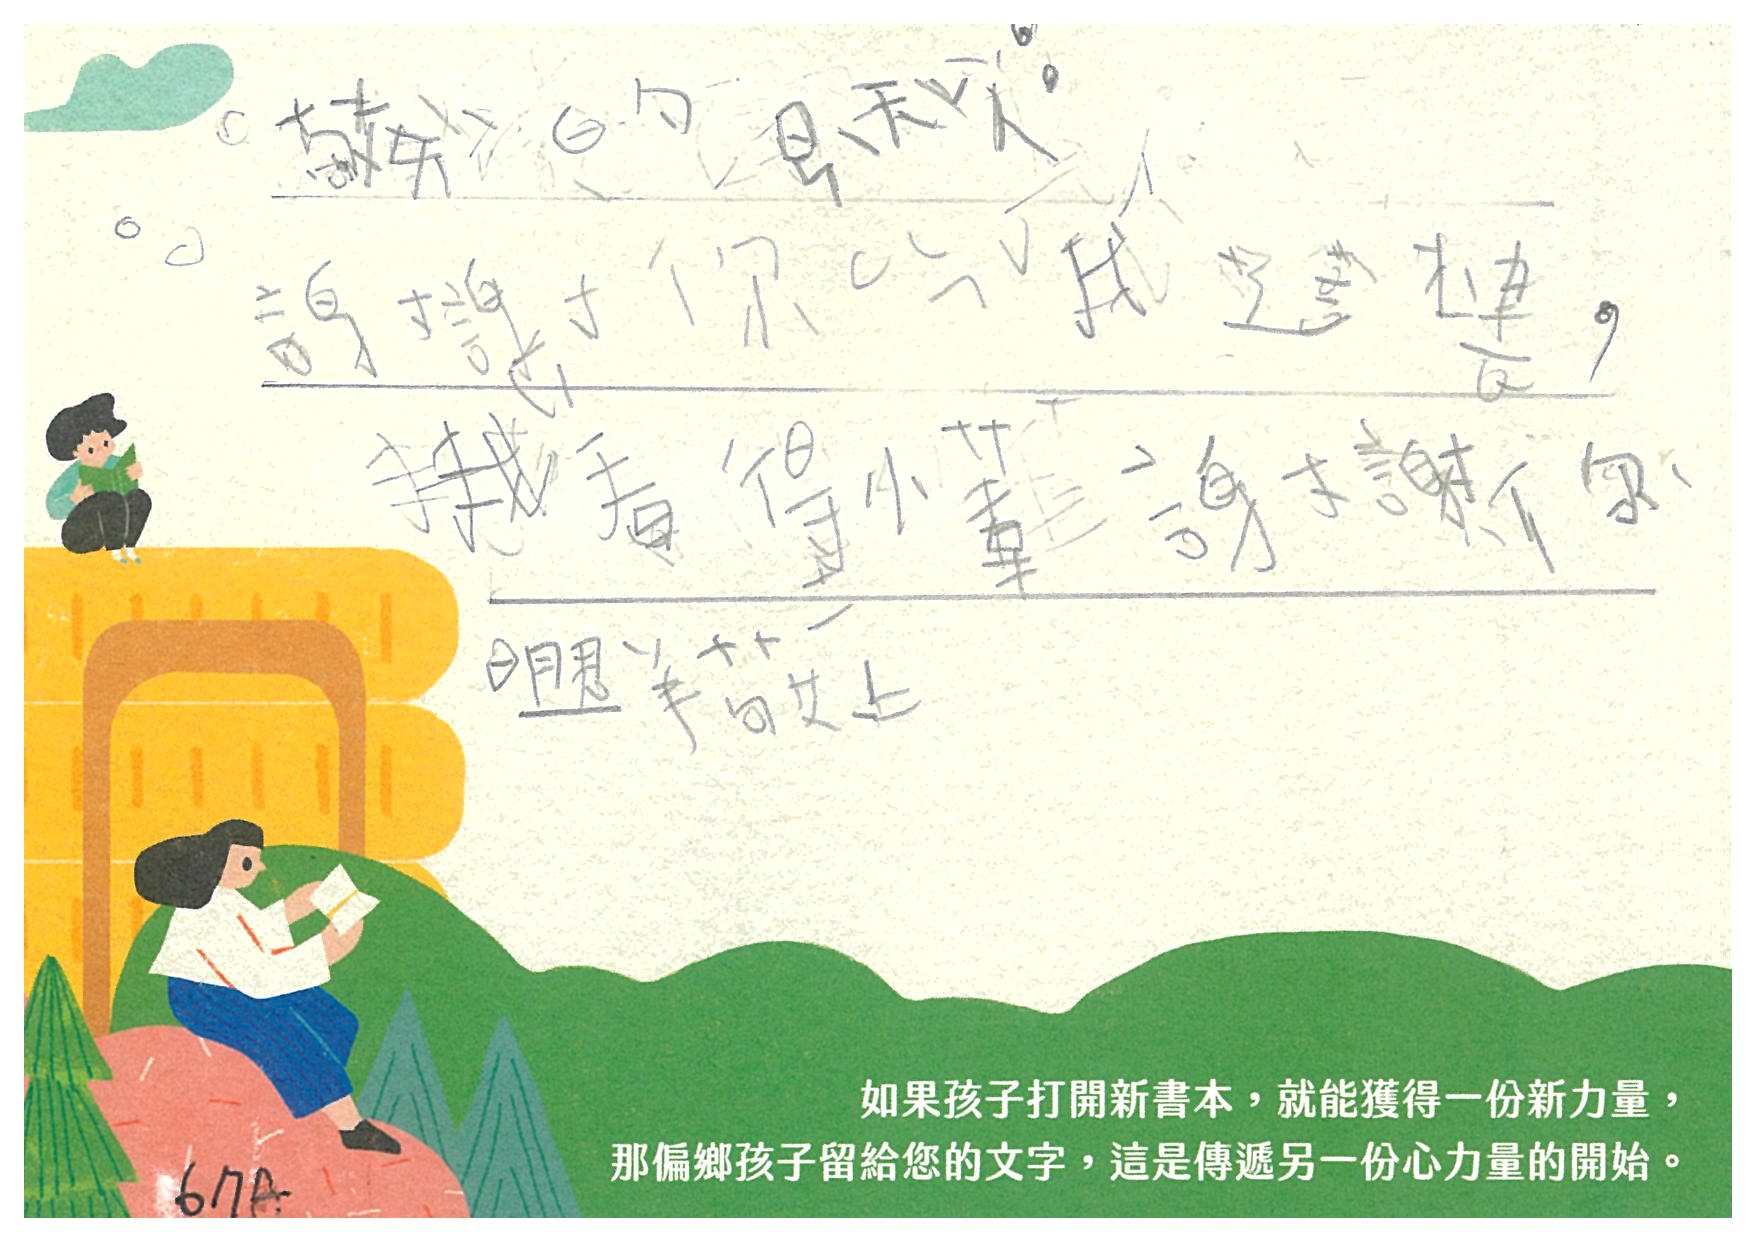 敬愛的恩人：
謝謝你以我這本書，
我看得懂謝謝你
敬上
如果孩子打開新書本，就能獲得一份新力量，
那偏鄉孩子留給您的文字，這是傳遞另一份心力量的開始。
67A